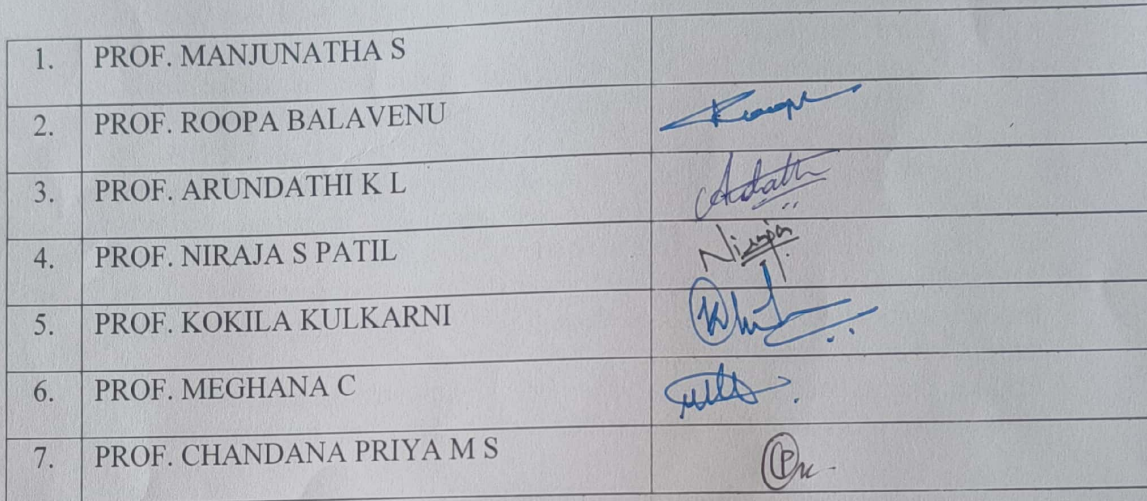 1. PROF. MANJUNATHA S
2. PROF. ROOPA BALAVENU
3. PROF. ARUNDATHI K L
4. PROF. NIRAJA S PATIL Niraja
5. PROF. KOKILA KULKARNI
6. PROF. MEGHANA C
7. PROF. CHANDANA PRIYA M S